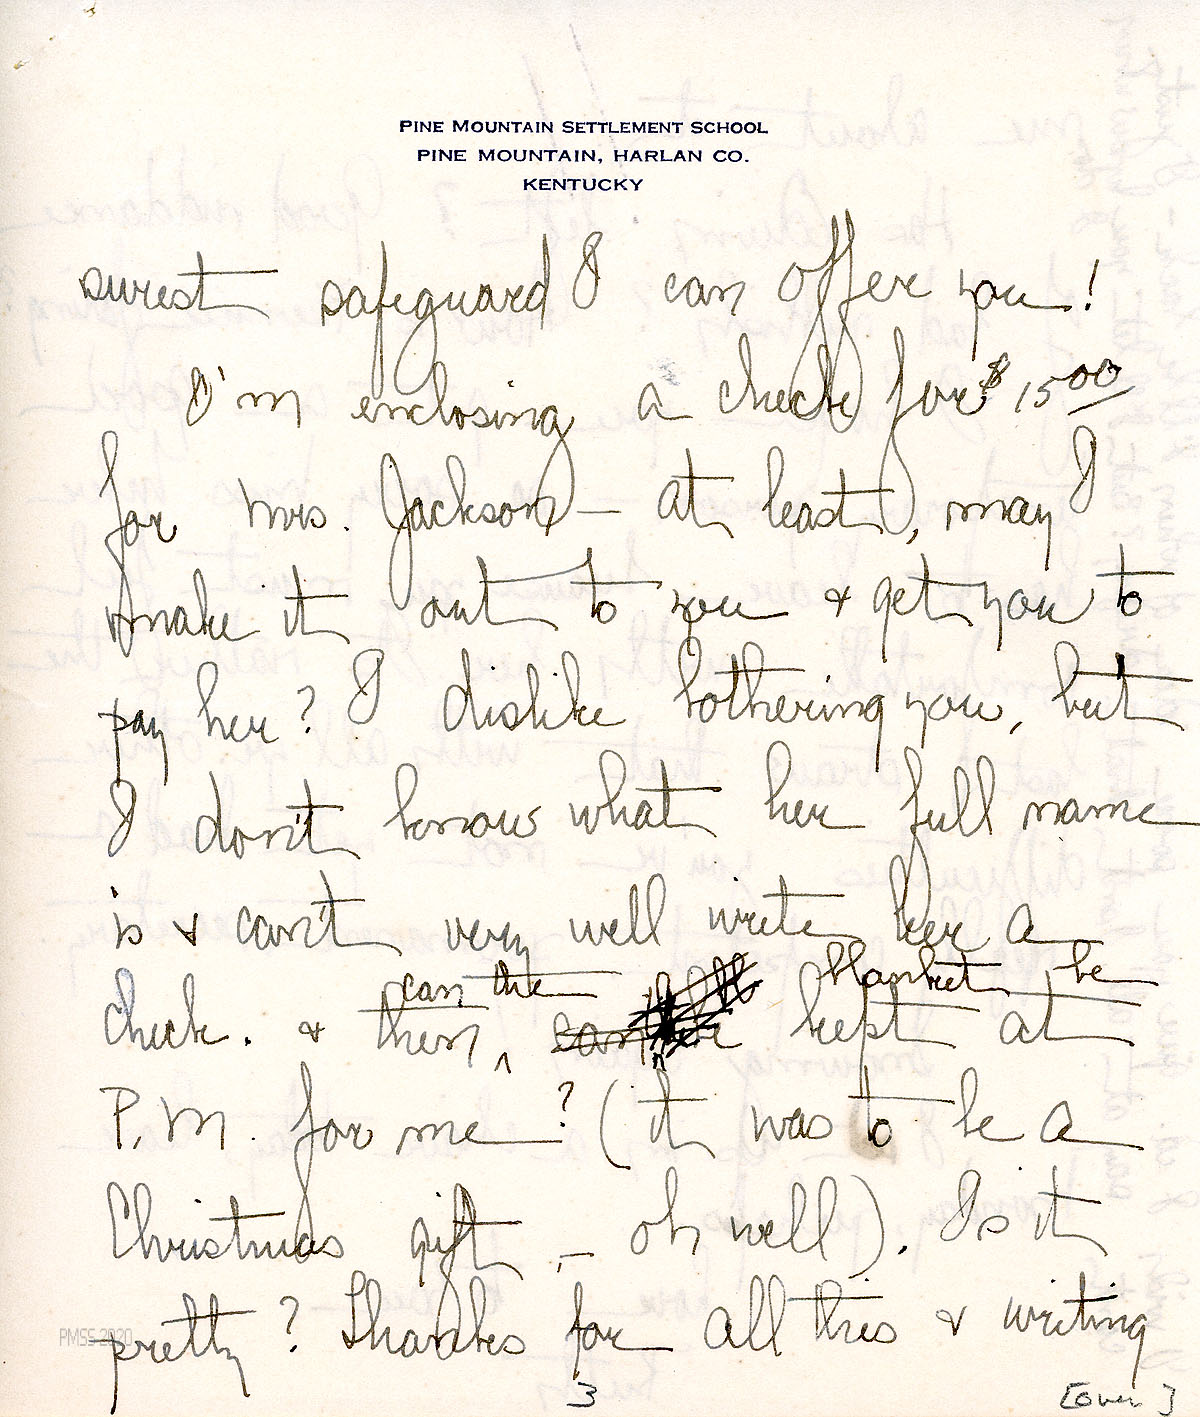 PINE MOUNTAIN SETTLEMENT SCHOOL
PINE MOUNTAIN, HARLAN CO.
KENTUCKY
surest safeguard I can offer you!
I'm enclosing a check for $1500
for Mrs. Jackson – at least, may I
make it out to you & get you to
pay her? I dislike bothering you, but
I don't know what her full name
is & can't very well write her a
check. & then, can the blanket be kept at
P.M. for me? (it was to be a
Christmas gift, – oh well). Is it
pretty? Thanks for all this & writing
PMSS 2020
3 [over]